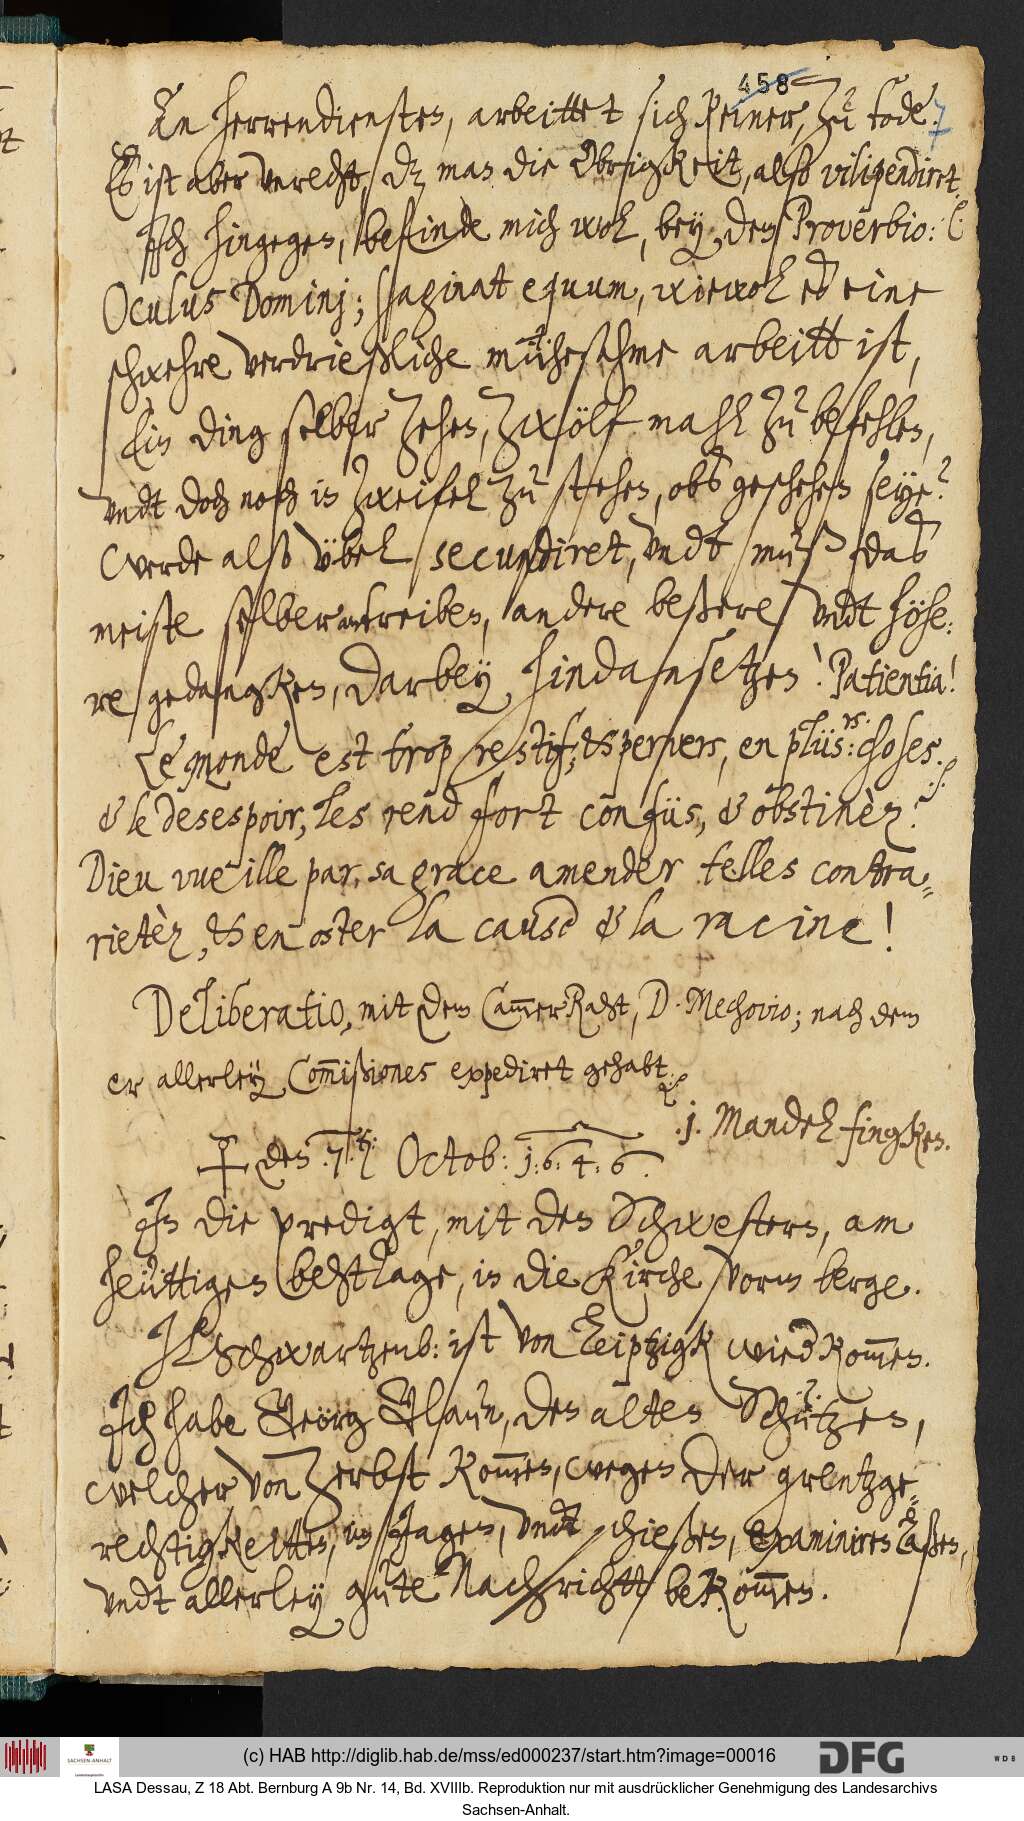 458
7
An Herrendiensten, arbeittet sich keiner, zu tode.
Es ist aber unrecht, dz man die Obrigkeit, also vilipendiret.
Ich hingegen, befinde mich wol, bey dem Proverbio:
Oculus Dominj; saginat equum, wiewol es eine
schwehre verdrießliche mühesahme arbeitt ist,
Ein ding selber zehen, zwölf mahl zu befehlen,
undt doch noch in zweifel zu stehen, obs geschehen seye?
Werde also übel secundiret, undt muß das
meiste selber treiben, andere beßere undt höhe:
re gedancken, darbey hindansetzen! Patientia!
Le monde est trop restif, & pervers, en plüs:rs choses.
& le desespoir, les rend fort confüs, & obstinèz.
Dieu vueille par, sa grace amender telles contra-
rietèz, & en oster la cause & la racine!
Deliberatio, mit dem CammerRaht, D. Mechovio; nach dem
er allerley Commißiones expediret gehabt.
.j. Mandel fingken.
den .7. Octob: 1.6.4.6.
In die predigt, mit den Schwestern, am
heüttigen behttage, in die Kirche vorm berge.
H Schwartzenb: ist von Leiptzigk wied kommen.
Ich habe Geörg Clauß, den alten Schützen,
welcher von Zerbst kommen, wegen der grentzge-
rechtigkeitten, im Jagen, undt schießen, examiniren laßen,
undt allerley gute Nachrichtt bekommen.
(c) HAB http://diglib.hab.de/mss/ed000237/start.htm?image=00016
SACHSEN-ANHALT
DFG
WDB
LASA Dessau, Z 18 Abt. Bernburg A 9b Nr. 14, Bd. XVIIIb. Reproduktion nur mit ausdrücklicher Genehmigung des Landesarchivs
Sachsen-Anhalt.